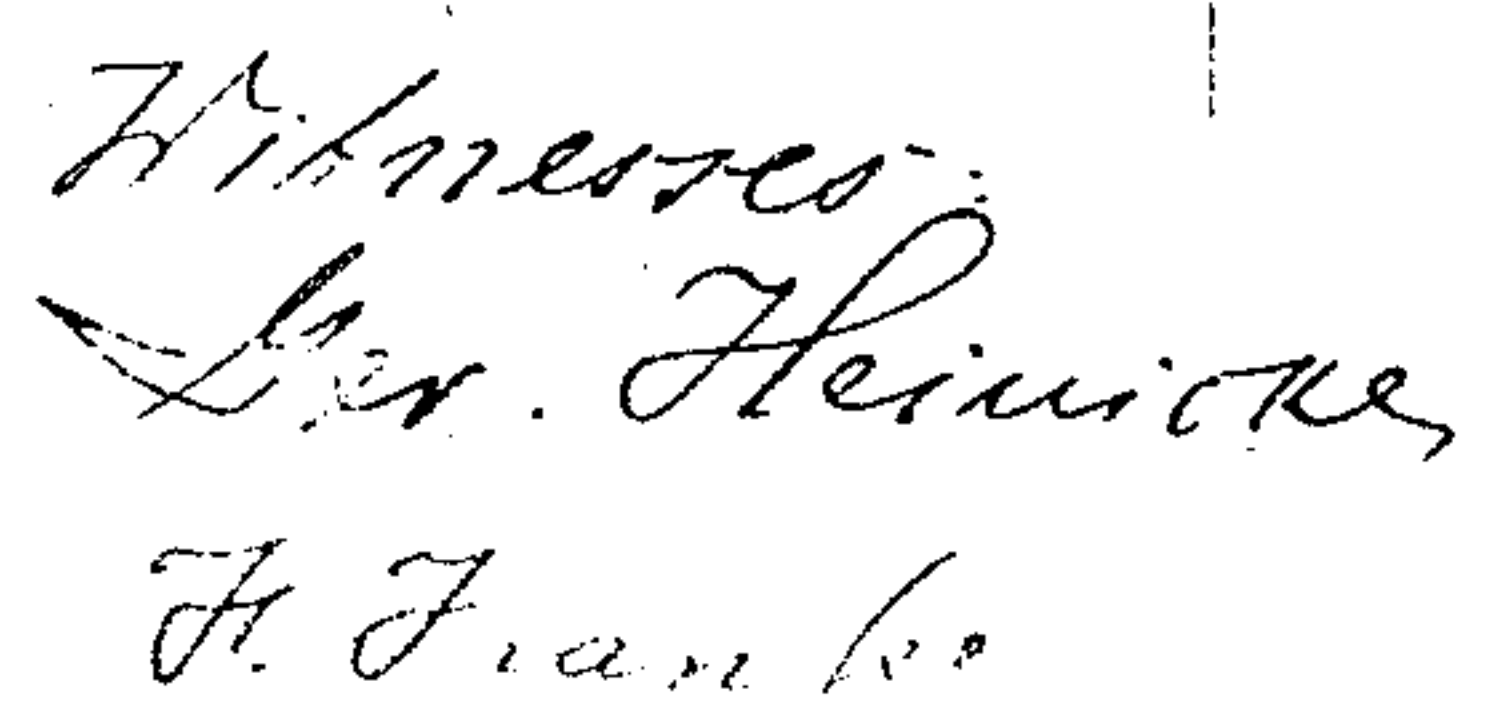 Witnesses:
Heinicke
H. Franke